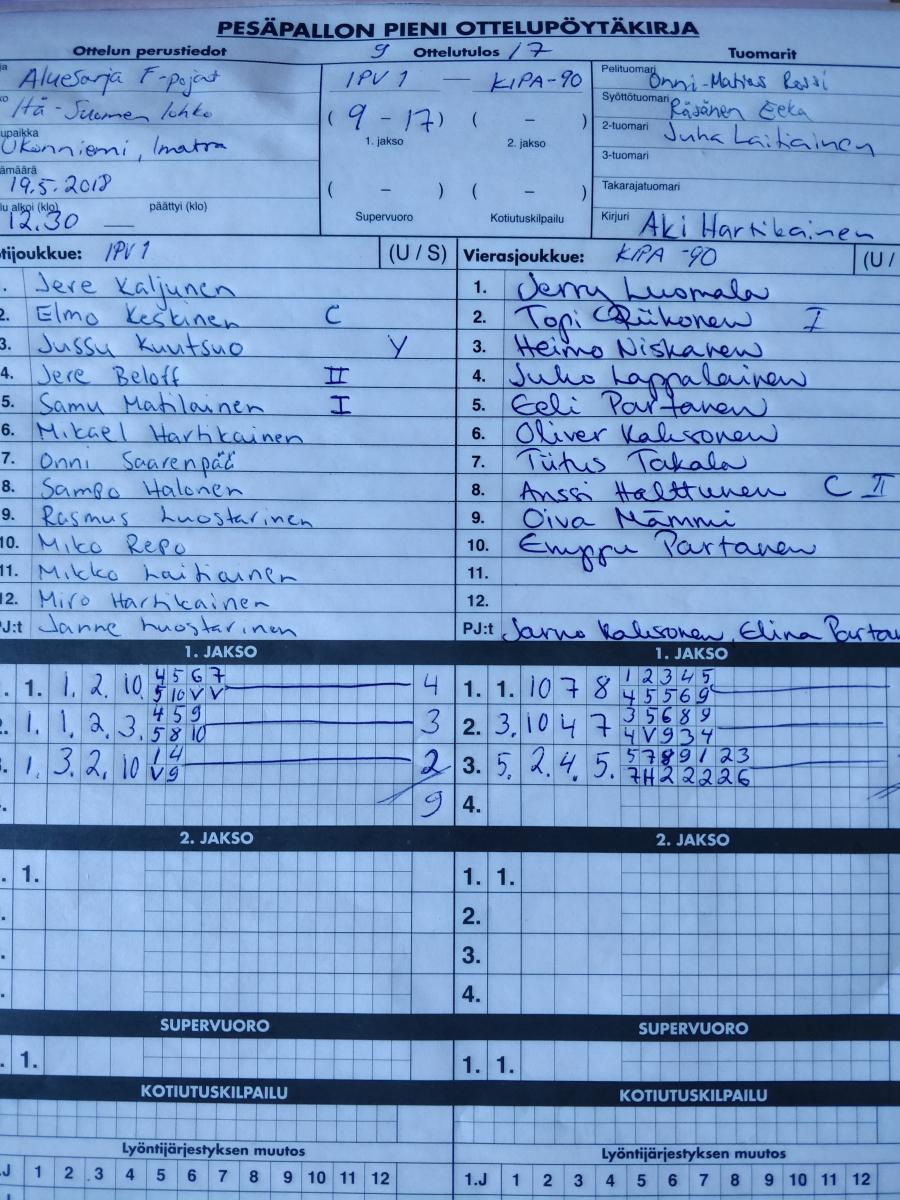 PESÄPALLON PIENI OTTELUPÖYTÄKIRJA
Ottelun perustiedot
9 Ottelutulos 17
Tuomarit
Aluesarja F-pojat
Itä-Suomen lohko
Ukonniemi, Imatra
19.5.2018
alkoi (klo) päättyi (klo)
12.30 —
IPV 1 — KIPA-90
( 9 - 17 ) ( - )
1. jakso 2. jakso
( - ) ( - )
Supervuoro Kotiutuskilpailu
Pelituomari Onni-Matias Rossi
Syöttötuomari Räsänen Eeka
2-tuomari Juha Laitiainen
3-tuomari
Takarajatuomari
Kirjuri Aki Hartikainen
tijoukkue: IPV 1 (U / S)
Jere Kaljunen
2. Elmo Keskinen C
3. Jussu Kuutsuo Y
4. Jere Beloff II
5. Samu Matilainen I
6. Mikael Hartikainen
7. Onni Saarenpää
8. Sampo Halonen
9. Rasmus Luostarinen
10. Miko Repo
11. Mikko Laitiainen
12. Miro Hartikainen
PJ:t Janne Luostarinen
Vierasjoukkue: KIPA -90 (U /
1. Jerry Luomala
2. Topi Riikonen I
3. Heimo Niskanen
4. Juho Lappalainen
5. Eeli Partanen
6. Oliver Kaksonen
7. Tiitus Takala
8. Anssi Halttunen C II
9. Oiva Mämmi
10. Emppu Partanen
11.
12.
PJ:t Jarno Kaksonen, Elina Parta
1. JAKSO
4 5 6 7
1. 1. 2. 10. 4
5 10 V V
4 5 9
1. 1. 2. 3. 3
5 8 10
1 4
1. 3. 2. 10 2
V 9
9
1. JAKSO
1 2 3 4 5
1. 1. 10 7 8
4 5 5 6 9
3 5 6 8 9
2. 3. 10 4 7
4 V 9 3 4
5 7 8 9 1 2 3
3. 5. 2. 4. 5.
7 H 2 2 2 2 6
4.
2. JAKSO
1.
2. JAKSO
1. 1.
2.
3.
4.
SUPERVUORO
1.
SUPERVUORO
1. 1.
KOTIUTUSKILPAILU
KOTIUTUSKILPAILU
Lyöntijärjestyksen muutos
.J 1 2 3 4 5 6 7 8 9 10 11 12
Lyöntijärjestyksen muutos
1.J 1 2 3 4 5 6 7 8 9 10 11 12